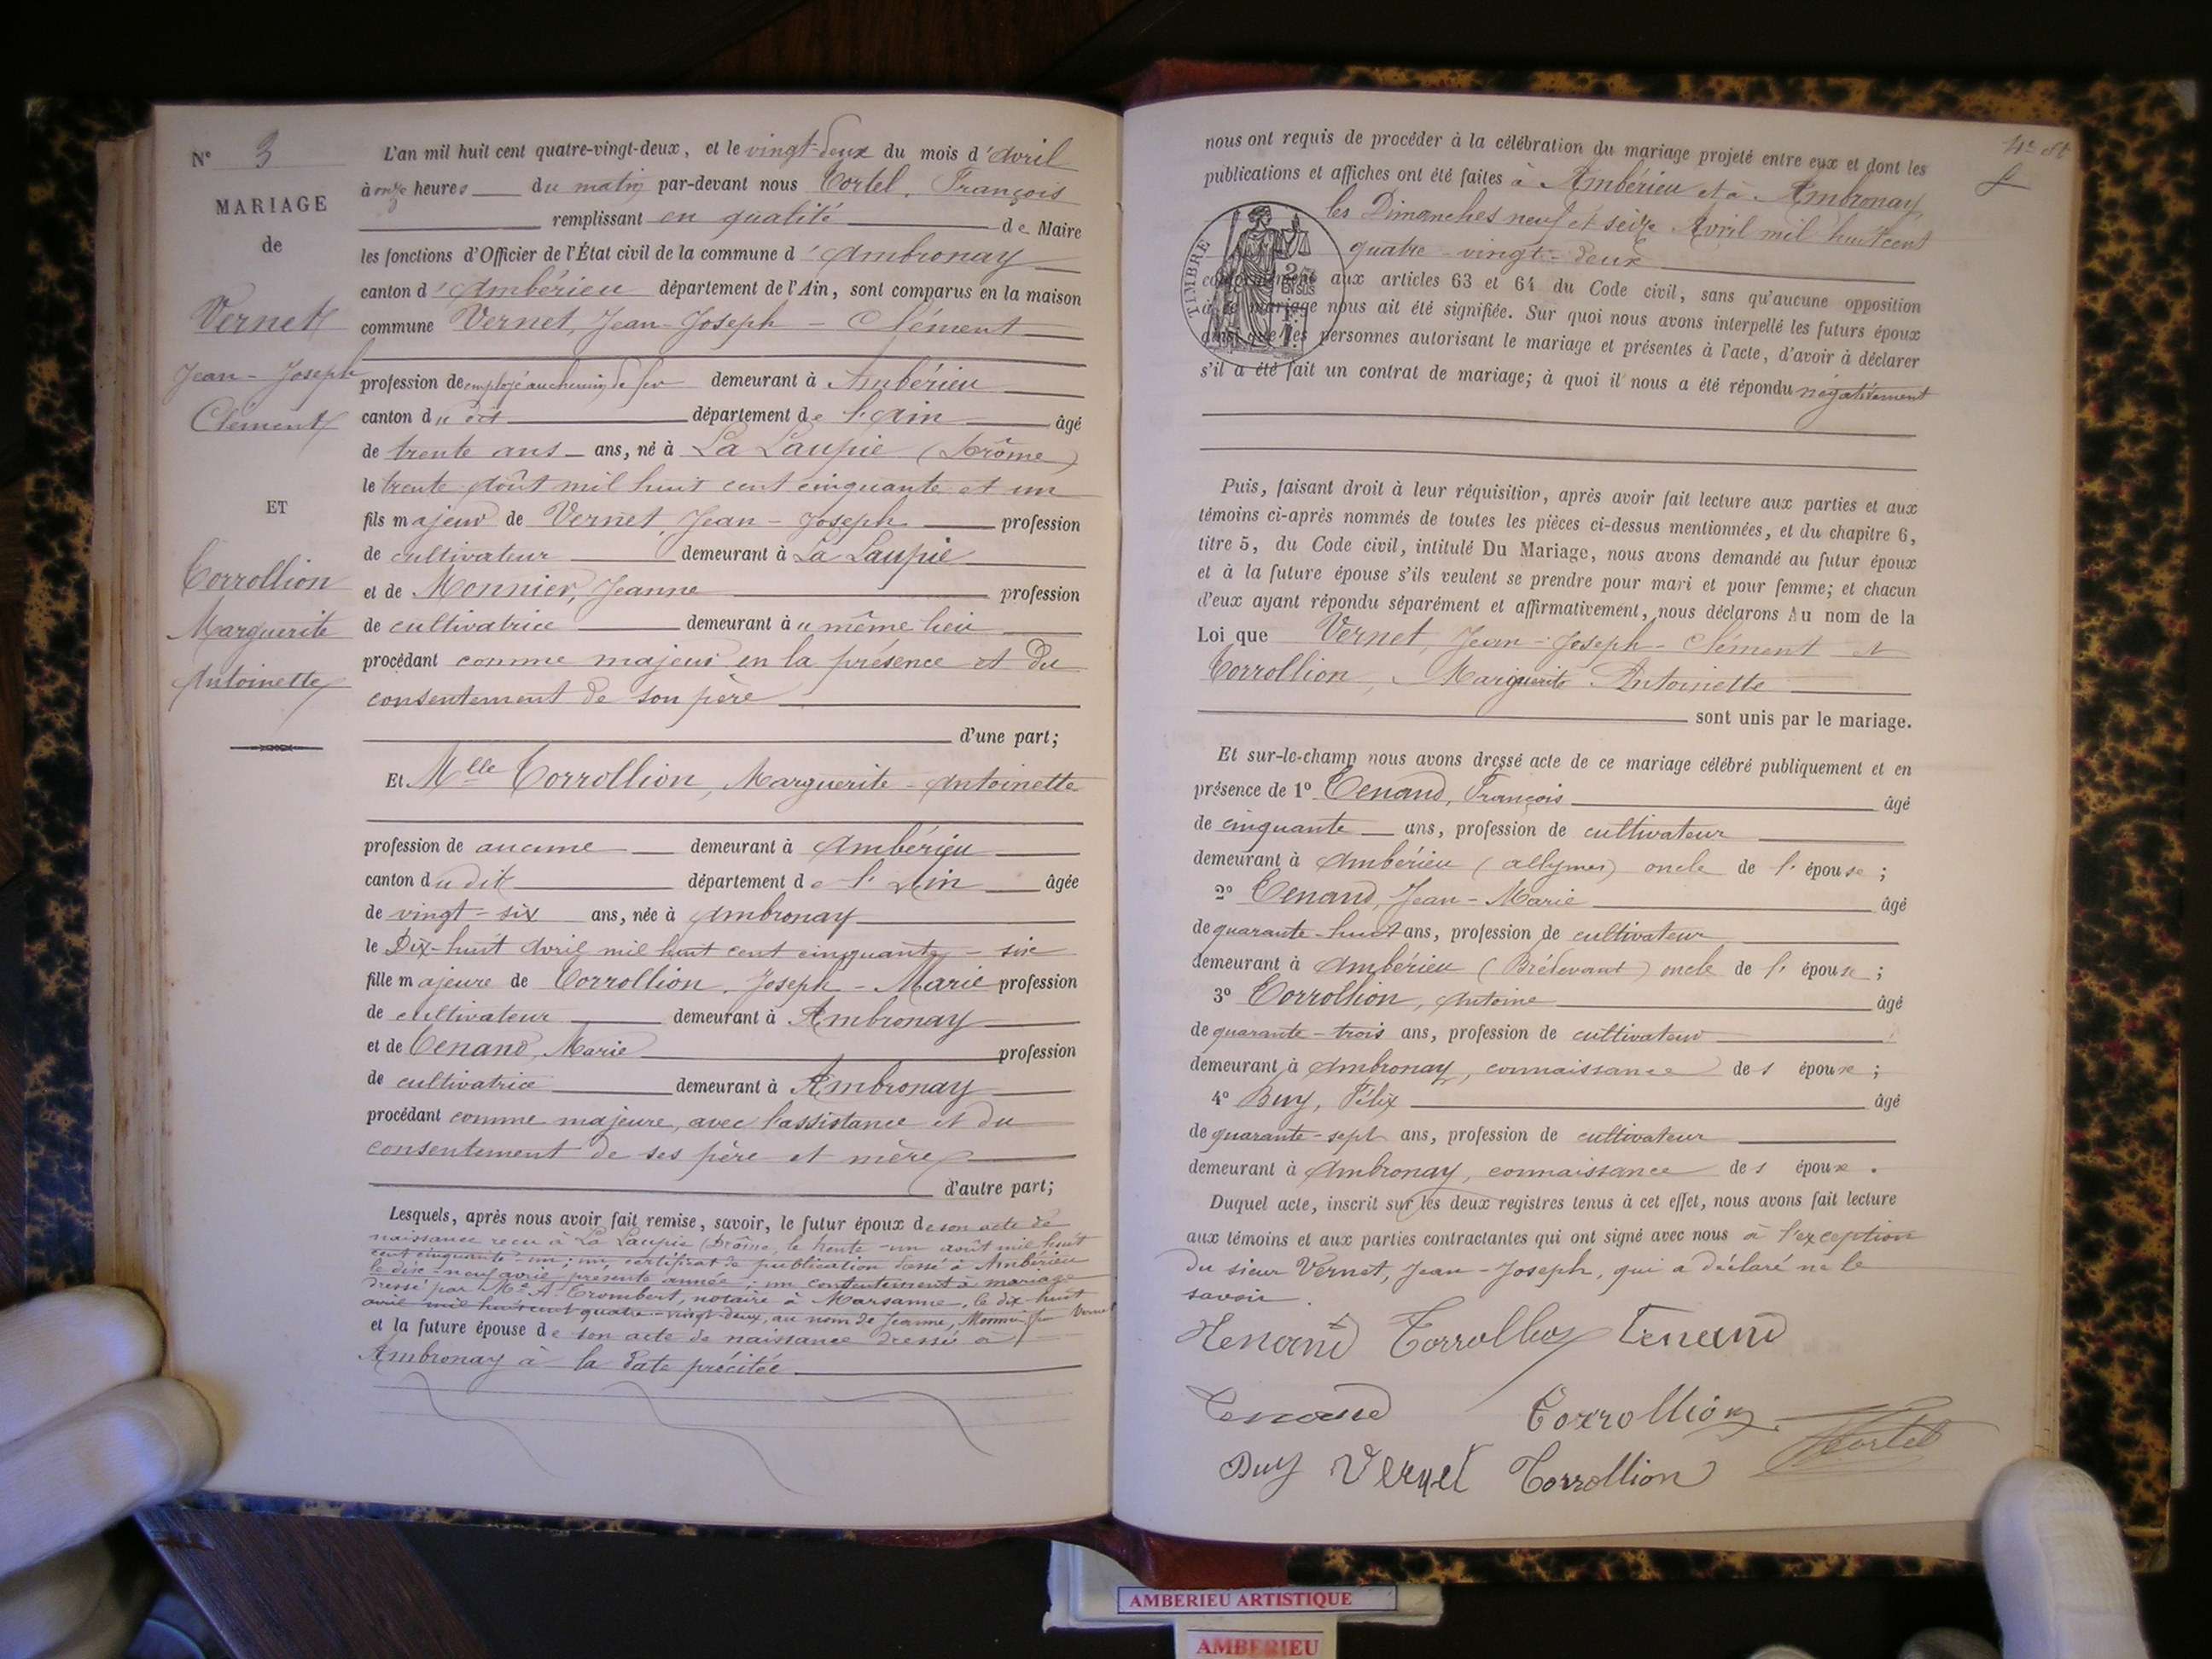 N° 3
MARIAGE
de
Vernet
Jean-Joseph
Clément
ET
Corrollion
Marguerite
Antoinette
L'an mil huit cent quatre-vingt-deux, et le vingt-deux du mois d'Avril
à onze heures du matin par-devant nous Cortel, François
remplissant en qualité de Maire
les fonctions d'Officier de l'État civil de la commune d'Ambronay
canton d'Ambérieu département de l'Ain, sont comparus en la maison
commune Vernet, Jean-Joseph-Clément
profession de employé au chemin de fer demeurant à Ambérieu
canton du dit département de l'Ain âgé
de trente ans ans, né à La Laupie (Drôme)
le trente Août mil huit cent cinquante et un
fils majeur de Vernet, Jean-Joseph profession
de cultivateur demeurant à La Laupie
et de Monnier, Jeanne profession
de cultivatrice demeurant à u même lieu
procédant comme majeur en la présence et du
consentement de son père
d'une part;
Et Mlle Corrollion, Marguerite-Antoinette
profession de aucune demeurant à Ambérieu
canton du dit département de l'Ain âgée
de vingt-six ans, née à Ambronay
le Dix-huit Avril mil huit cent cinquante-six
fille majeure de Corrollion, Joseph-Marie profession
de cultivateur demeurant à Ambronay
et de Tenand, Marie profession
de cultivatrice demeurant à Ambronay
procédant comme majeure, avec l'assistance et du
consentement de ses père et mère
d'autre part;
Lesquels, après nous avoir fait remise, savoir, le futur époux de son acte de
naissance reçu à La Laupie (Drôme, le trente-un août mil huit
cent cinquante-un; un certificat de publication dressé à Ambérieu
le dix-neuf avril présente année; un consentement à mariage
dressé par Me A. Trombert, notaire à Marsanne, le dix huit
avril mil huit cent quatre-vingt-deux, au nom de Jeanne, Monnier fe Vernet
et la future épouse de son acte de naissance dressé à
Ambronay à la date précitée
nous ont requis de procéder à la célébration du mariage projeté entre eux et dont les
publications et affiches ont été faites à Ambérieu et à Ambronay,
les Dimanches neuf et seize Avril mil huit cent
quatre-vingt-deux
TIMBRE
conformément aux articles 63 et 64 du Code civil, sans qu'aucune opposition
à ce mariage nous ait été signifiée. Sur quoi nous avons interpellé les futurs époux
ainsi que les personnes autorisant le mariage et présentes à l'acte, d'avoir à déclarer
s'il a été fait un contrat de mariage; à quoi il nous a été répondu négativement
Puis, faisant droit à leur réquisition, après avoir fait lecture aux parties et aux
témoins ci-après nommés de toutes les pièces ci-dessus mentionnées, et du chapitre 6,
titre 5, du Code civil, intitulé Du Mariage, nous avons demandé au futur époux
et à la future épouse s'ils veulent se prendre pour mari et pour femme; et chacun
d'eux ayant répondu séparément et affirmativement, nous déclarons Au nom de la
Loi que Vernet, Jean-Joseph-Clément et
Corrollion, Marguerite Antoinette
sont unis par le mariage.
Et sur-le-champ nous avons dressé acte de ce mariage célébré publiquement et en
présence de 1° Tenand, François âgé
de cinquante ans, profession de cultivateur
demeurant à Ambérieu (allymes) oncle de l'épouse;
2° Tenand, Jean-Marie âgé
de quarante-huit ans, profession de cultivateur
demeurant à Ambérieu (Brédevent) oncle de l'épouse;
3° Corrollion, Antoine âgé
de quarante-trois ans, profession de cultivateur
demeurant à Ambronay, connaissance des époux;
4° Buy, Félix âgé
de quarante-sept ans, profession de cultivateur
demeurant à Ambronay, connaissance des époux.
Duquel acte, inscrit sur les deux registres tenus à cet effet, nous avons fait lecture
aux témoins et aux parties contractantes qui ont signé avec nous à l'exception
du sieur Vernet, Jean-Joseph, qui a déclaré ne le
savoir.
Tenand Corrollion Tenand
Tenand Corrollion
Cortel
Buy Vernet Corrollion
AMBERIEU ARTISTIQUE
AMBERIEU